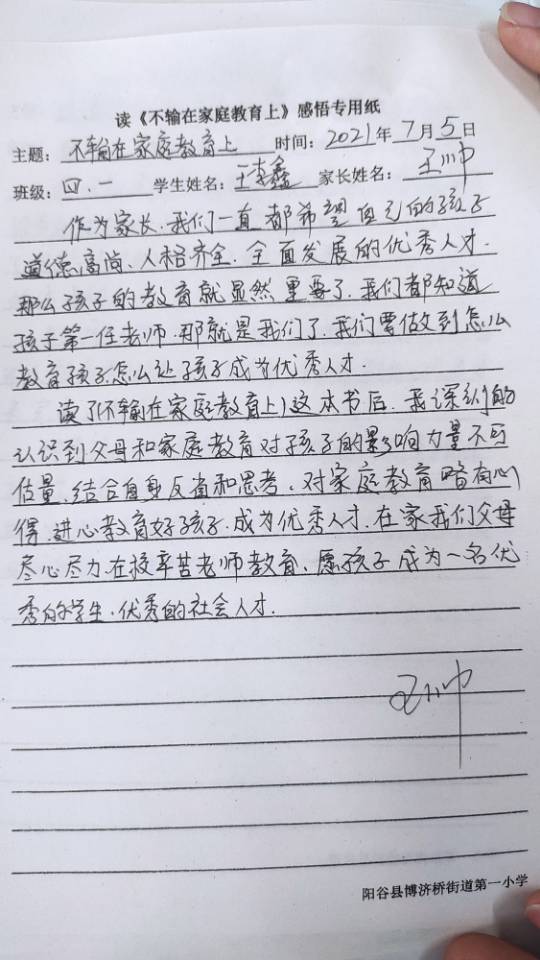 读《不输在家庭教育上》感悟专用纸
主题：不输在家庭教育上 时间：2021年7月5日
班级：四.一 学生姓名：王鑫 家长姓名：王帅
作为家长.我们一直都希望自己的孩子
道德高尚、人格齐全.全面发展的优秀人才.
那么孩子的教育就显然重要了.我们都知道
孩子第一任老师.那就是我们了.我们要做到怎么
教育孩子.怎么让孩子成为优秀人才.
读了《不输在家庭教育上》这本书后.我深刻的
认识到父母和家庭教育对孩子的影响力量不可
估量.结合自身反省和思考.对家庭教育略有心
得.进心教育好孩子.成为优秀人才.在家我们父母
尽心尽力.在校辛苦老师教育.愿孩子成为一名优
秀的学生.优秀的社会人才.
王帅
阳谷县博济桥街道第一小学